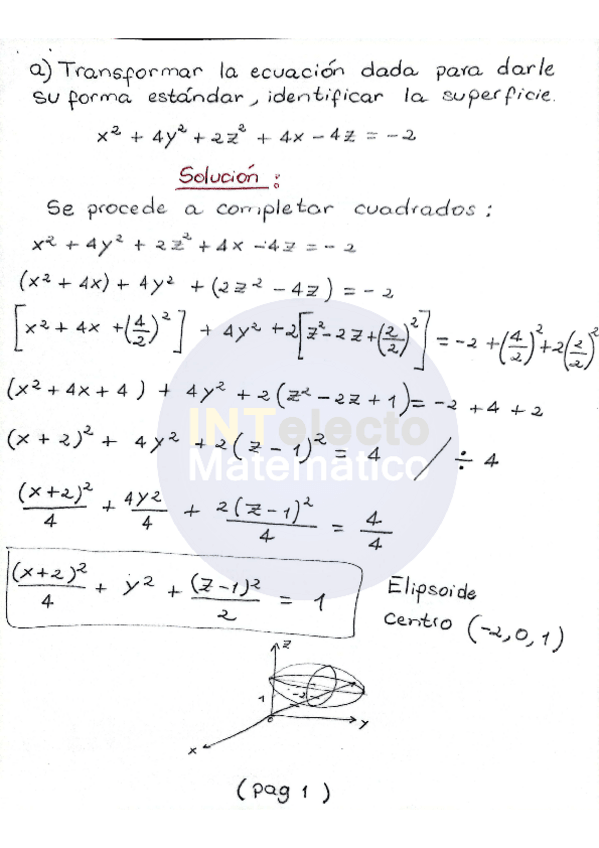 a) Transformar la ecuación dada para darle
su forma estándar, identificar la superficie.
x² + 4y² + 2z² + 4x - 4z = -2
Solución:
Se procede a completar cuadrados:
x² + 4y² + 2z² + 4x - 4z = -2
(x² + 4x) + 4y² + (2z² - 4z) = -2
[x² + 4x + (4/2)²] + 4y² + 2[z² - 2z + (2/2)²] = -2 + (4/2)² + 2(2/2)²
(x² + 4x + 4) + 4y² + 2(z² - 2z + 1) = -2 + 4 + 2
(x + 2)² + 4y² + 2(z - 1)² = 4 / ÷ 4
INTelecto
Matemático
(x+2)²/4 + 4y2/4 + 2(z-1)²/4 = 4/4
(x+2)²/4 + y² + (z-1)²/2 = 1
Elipsoide
centro (-2,0,1)
z
1
-2
0
y
x
(pag 1)